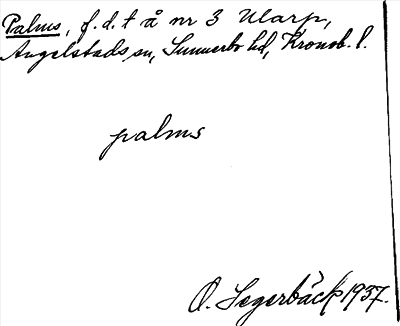 Palms, f.d. t å nr 3 Ularp,
Angelstads sn, Sunnerbo hd, Kronob. l.
palms
O. Segerbäck 1937.